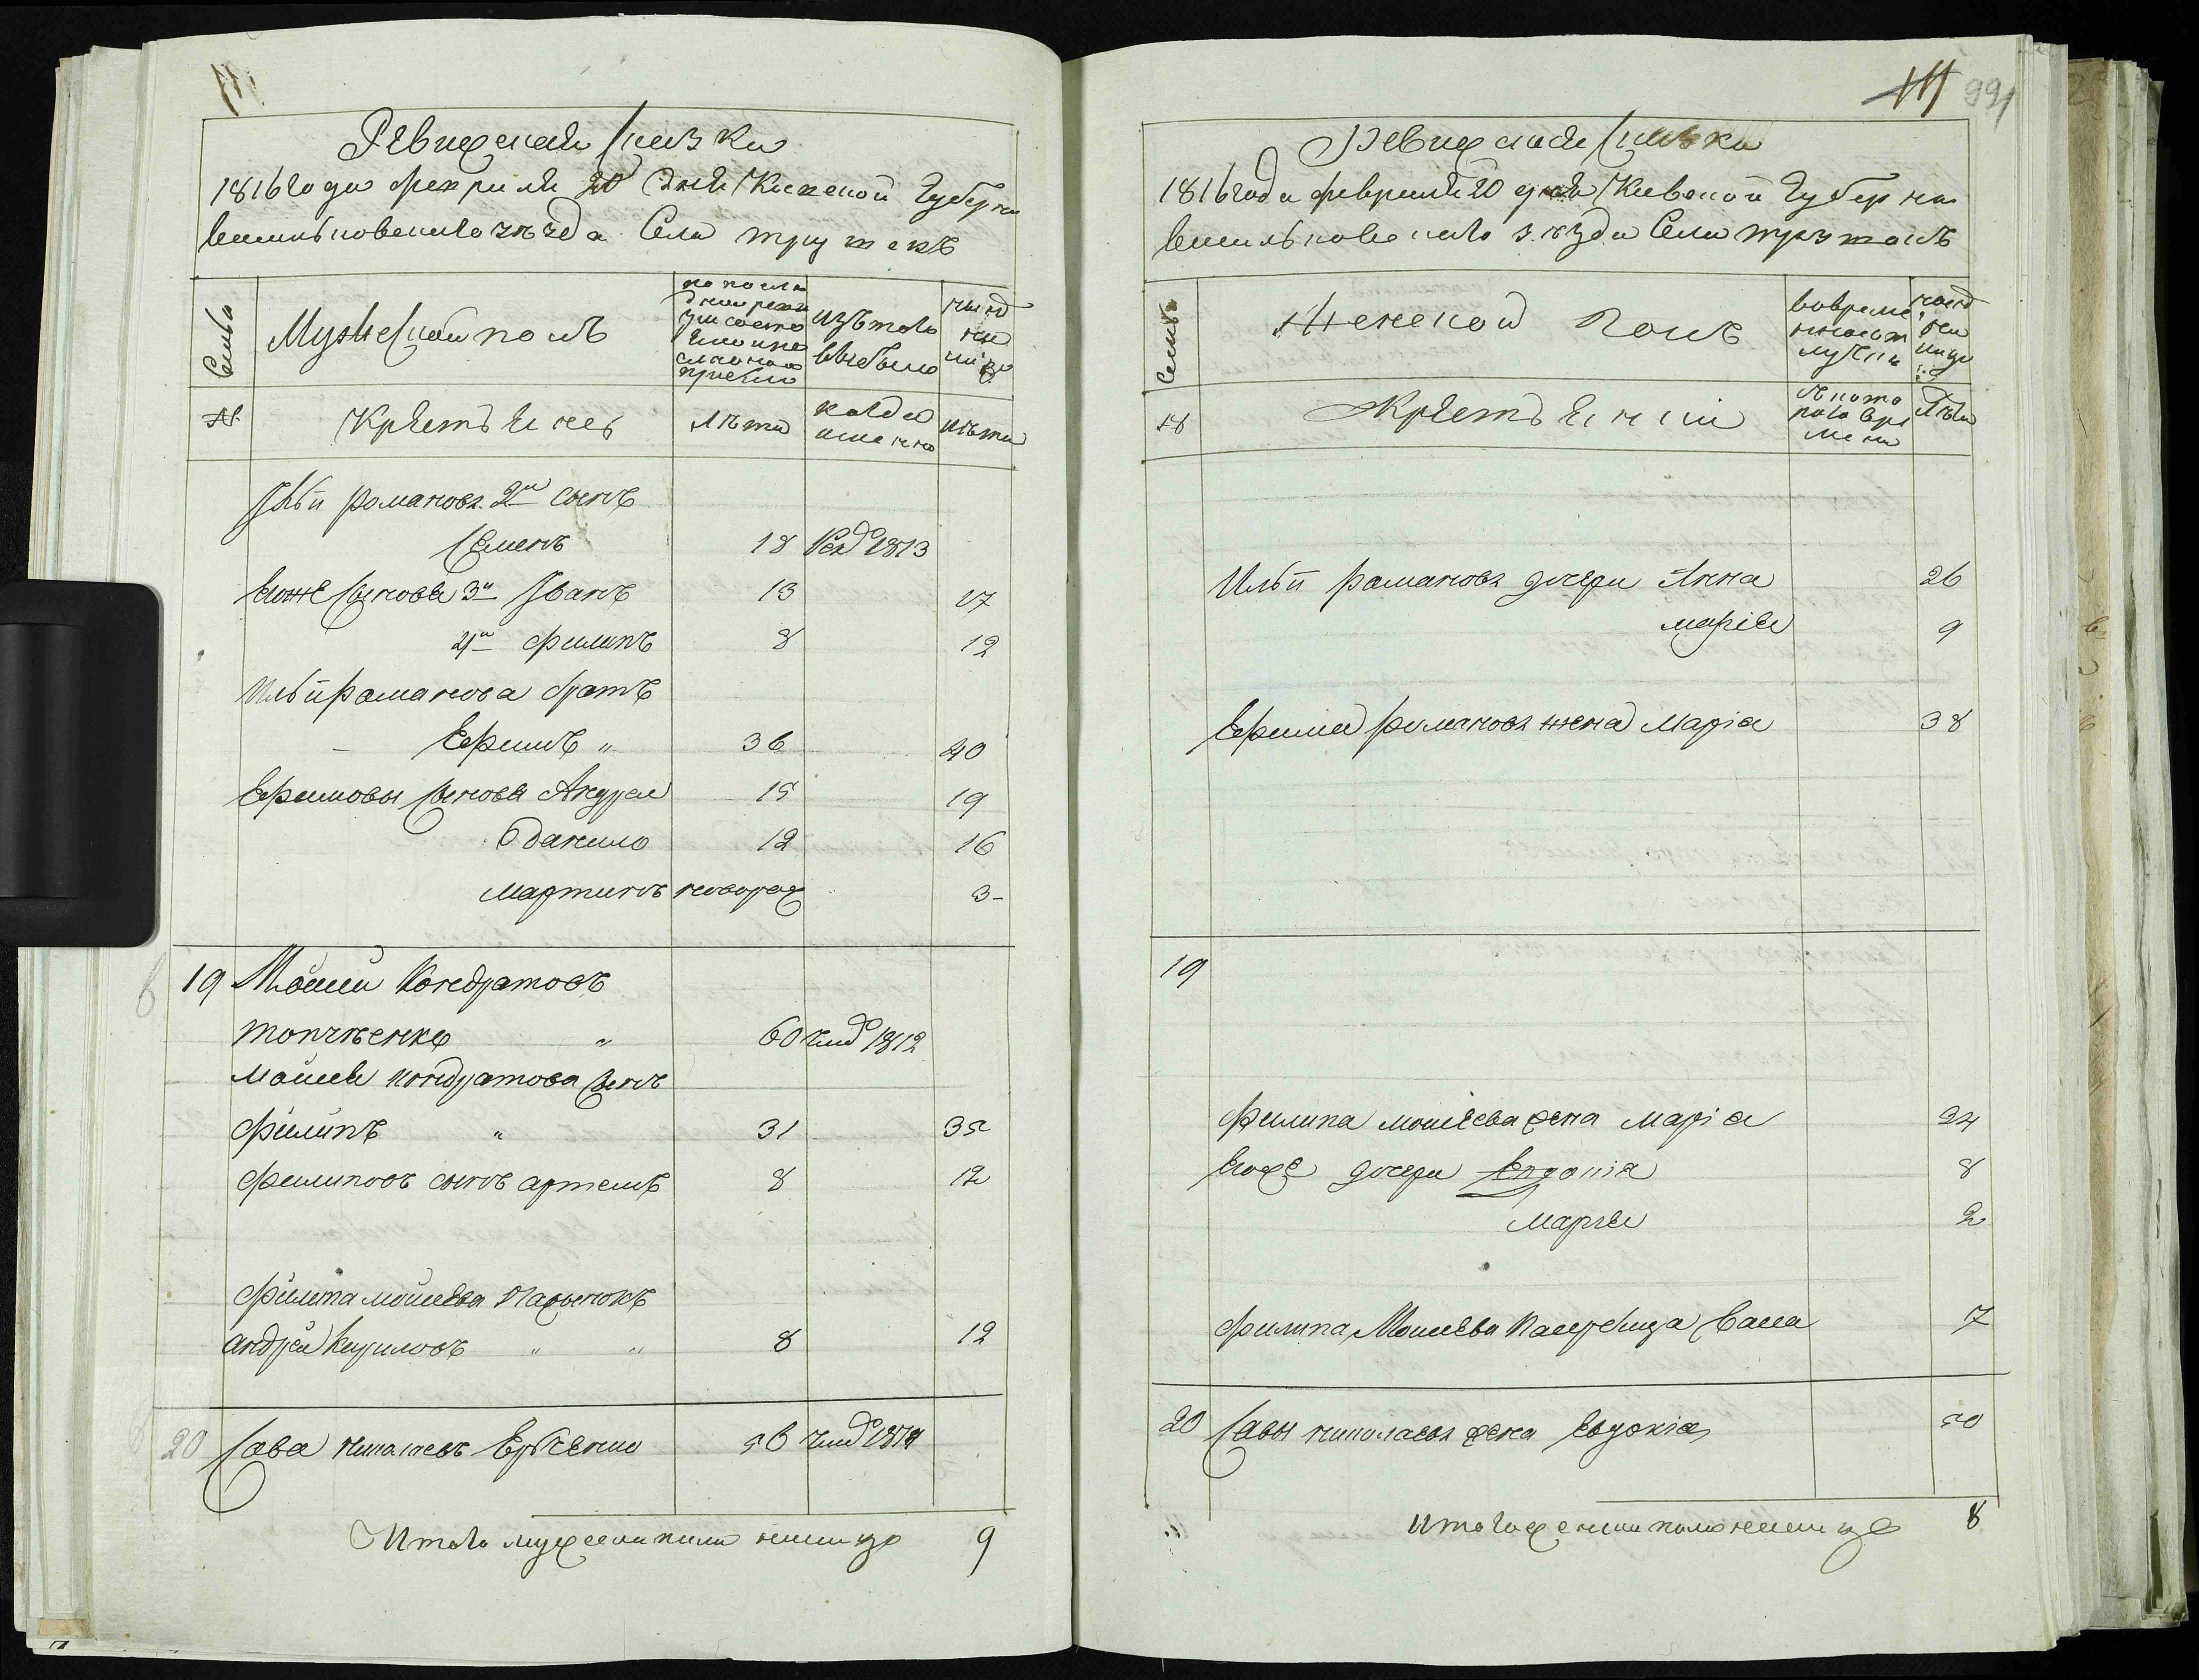 111
Ревижская сказка
1816 года февраля 20 дня Киевской Губернии
васильковскаго уезда Села трушекъ
Семья
Мужеской полъ
по последней ревизии состояло и после оной прибыло
изъ того выбыло
ныне на лицо
№
Крестьяне
Лета
когда именно
лета
Ильи романова 2й сынъ
Семенъ 18 рек. 1813
Егоже сыновья 3й Иванъ 13 17
4й филипъ 8 12
Ильи романова братъ
Ефимъ " 36 40
Ефимовы сыновья Андрей 15 19
данило 12 16
мартинъ новорож 3
19 Моисей Кондратовъ
топчѣенко " 60 умер 1812
моисея кондратова сынъ
филипъ " 31 35
филиповъ сынъ артемъ 8 12
филипа моисеева пасынокъ
андрей кириловъ " " 8 12
20 Сава николаевъ 56 умер 1814
Итого мужеска пола на лицо 9
111 991
Ревижская сказка
1816 года февраля 20 дня Киевской Губернии
васильковскаго уезда Села трушокъ
Семья
Женской полъ
вовременной отлучки
ныне на лицо
18
Крестьянки
съ котораго времени
Лета
Ильи романова дочери Анна 26
марія 9
Ефима романова жена марія 38
19
филипа моисеева жена марія 24
Егоже дочери Евдокія 8
марія 2
филипа Моисеева падчерица 7
20 Савы николаева жена Евдокія 50
Итого женска пола на лицо 8